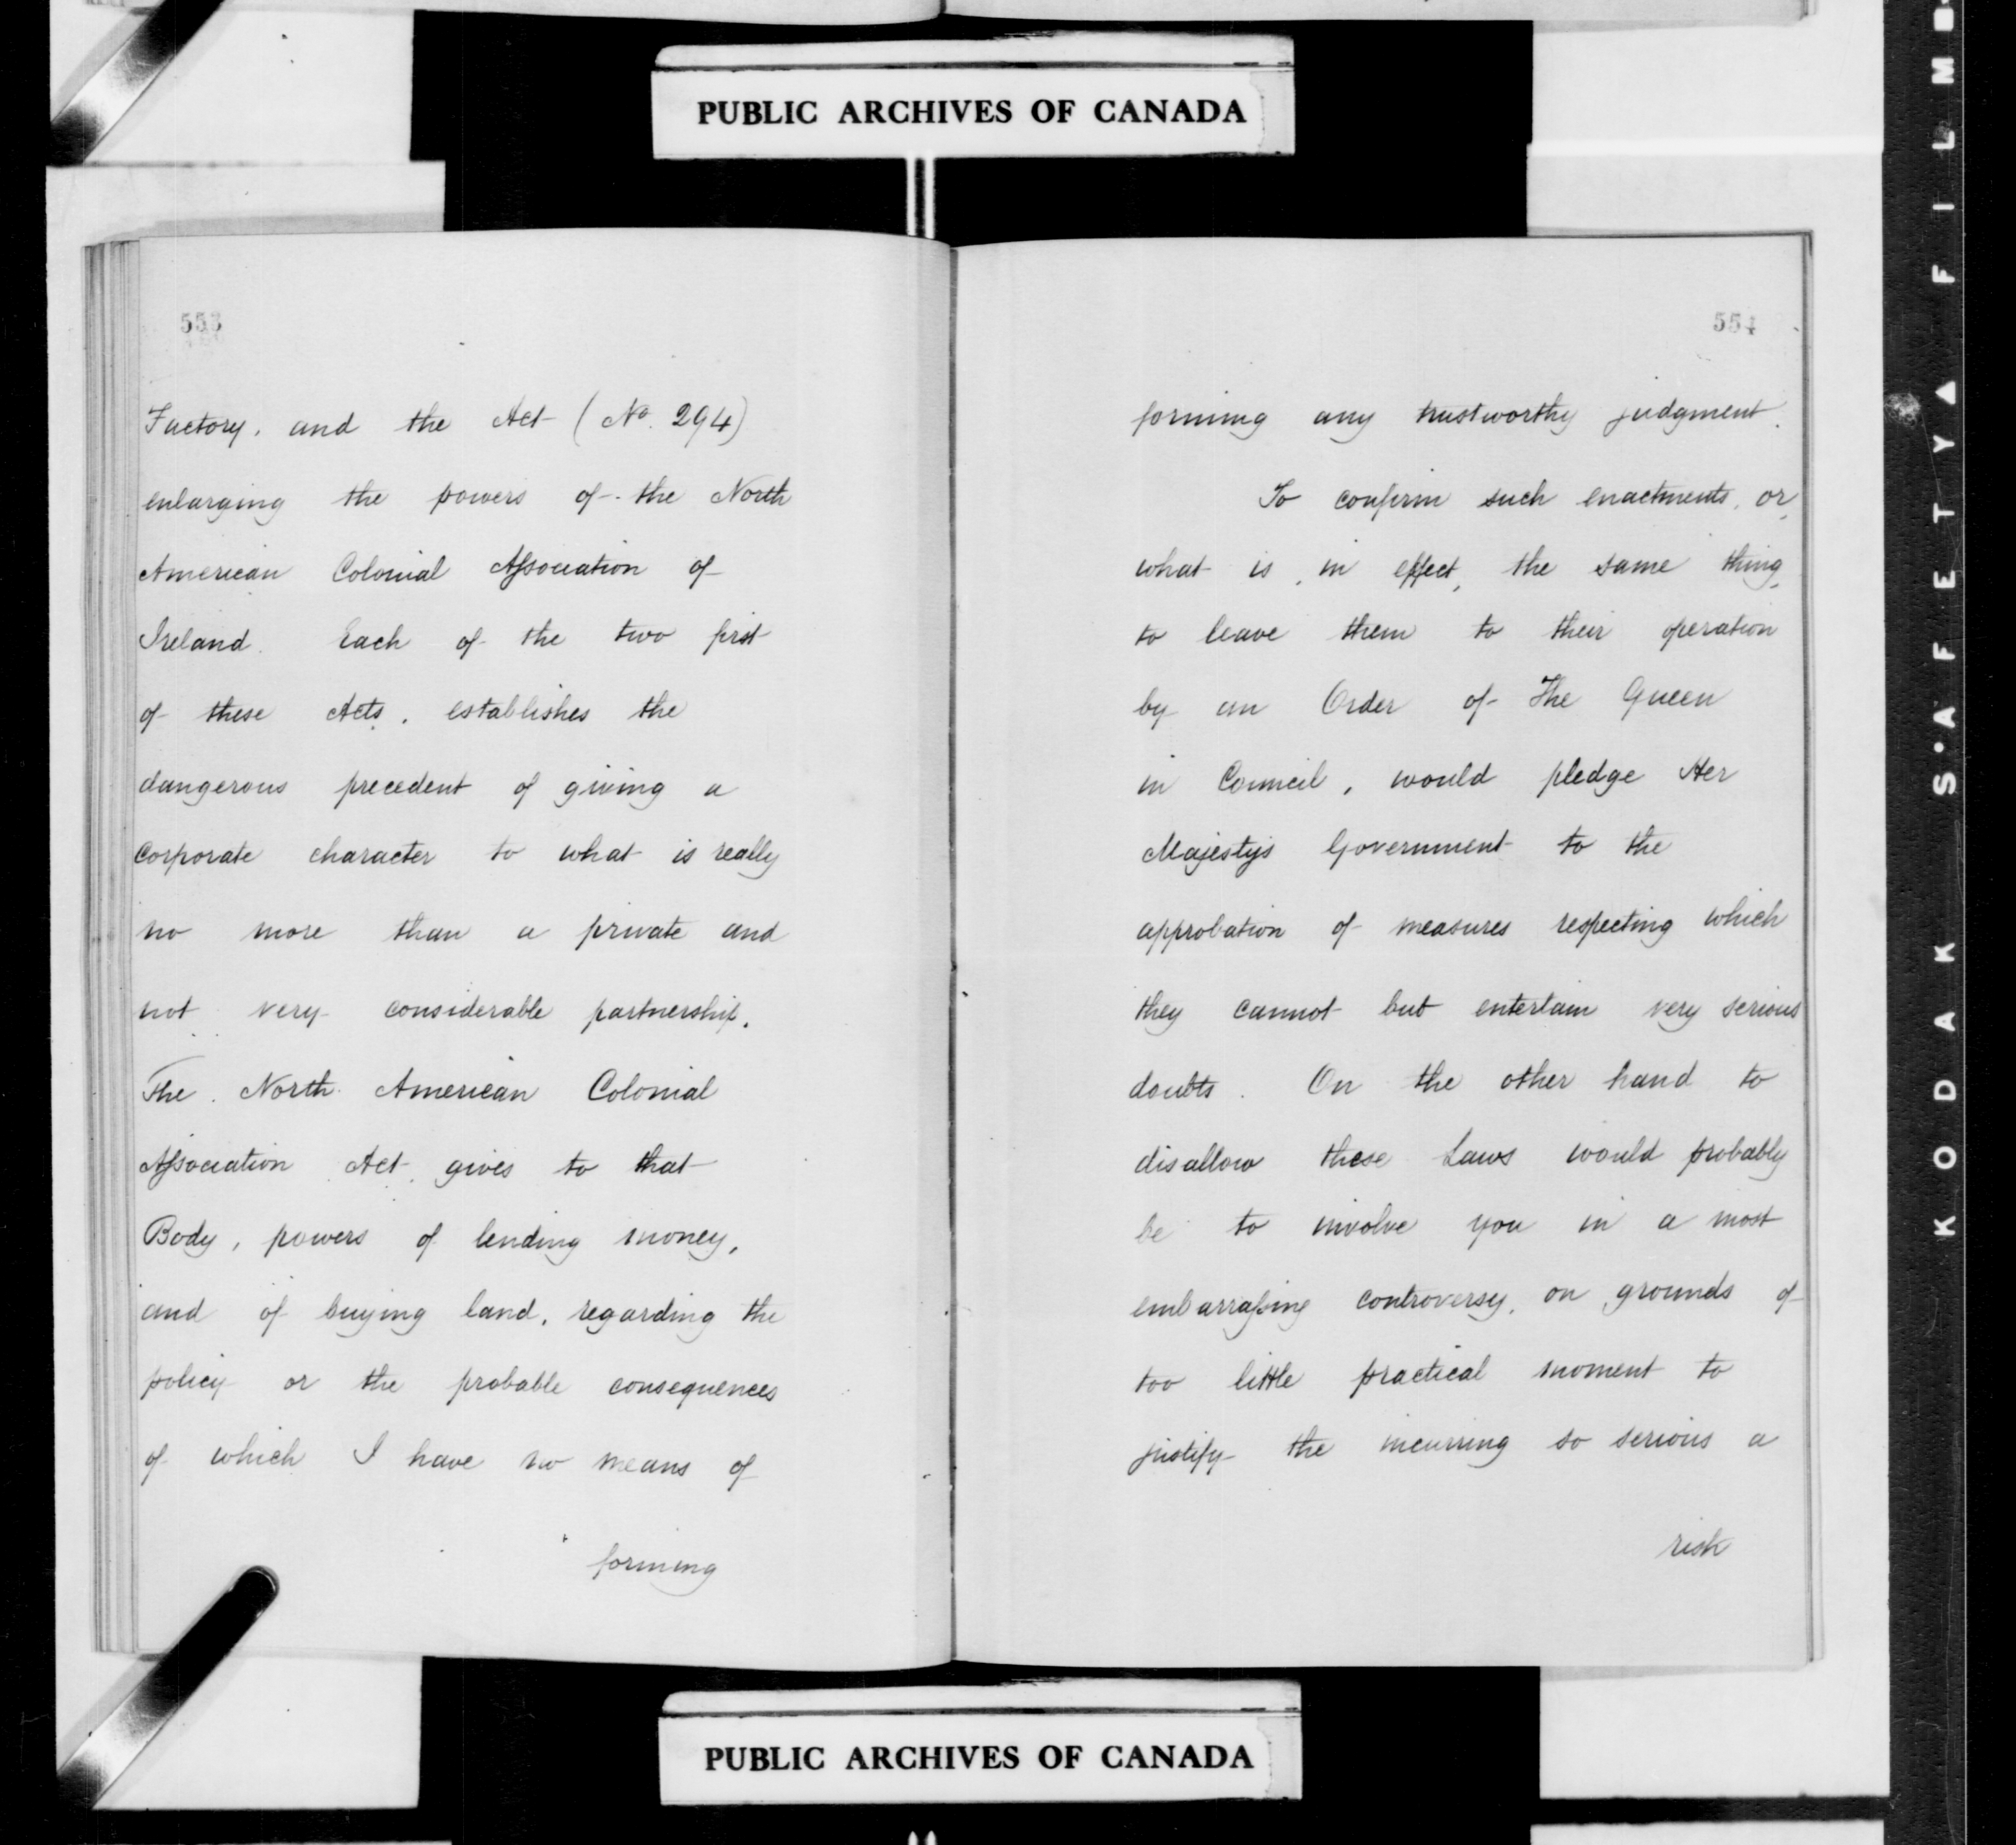 PUBLIC ARCHIVES OF CANADA
553
Factory, and the Act (No. 294)
enlarging the powers of the North
American Colonial Association of
Ireland. Each of the two first
of these Acts, establishes the
dangerous precedent of giving a
corporate character to what is really
no more than a private and
not very considerable partnership.
The North American Colonial
Association Act, gives to that
Body, powers of lending money,
and of buying land, regarding the
policy or the probable consequences
of which I have no means of
forming
554
forming any trustworthy judgment.
To confirm such enactments, or,
what is, in effect, the same thing,
to leave them to their operation
by an Order of The Queen
in Council, would pledge Her
Majesty's Government to the
approbation of measures respecting which
they cannot but entertain very serious
doubts. On the other hand to
disallow these Laws would probably
be to involve you in a most
embarrassing controversy, on grounds of
too little practical moment to
justify the incurring so serious a
risk
PUBLIC ARCHIVES OF CANADA
KODAK S·AFETY▲FILM